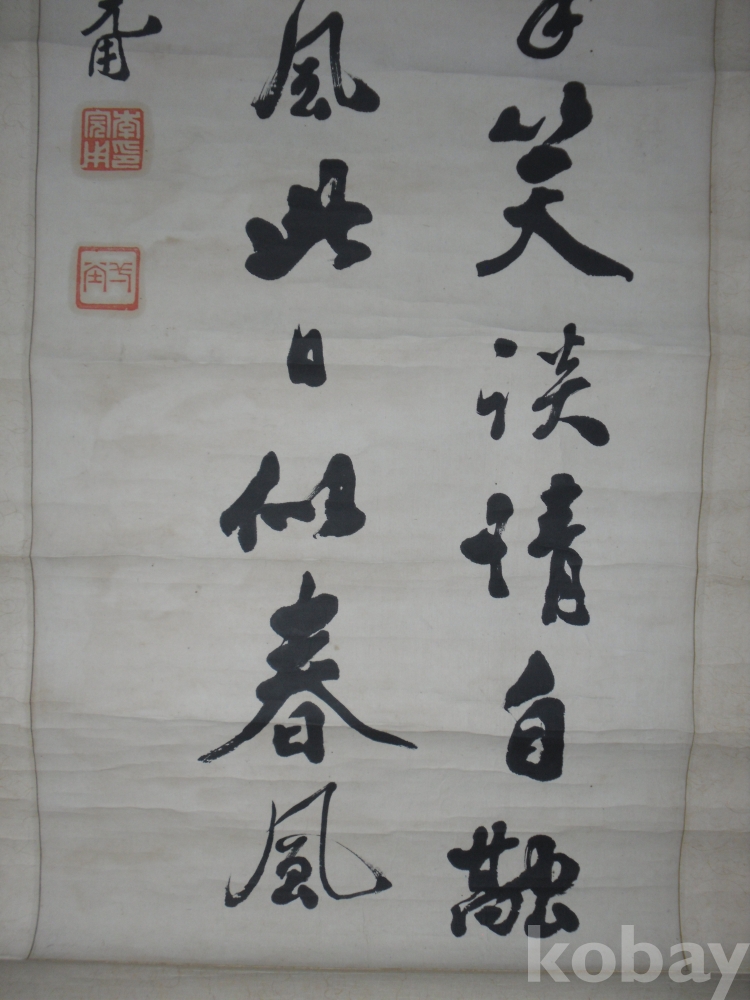 笑談情自融
風此日似春風
甫
kobay